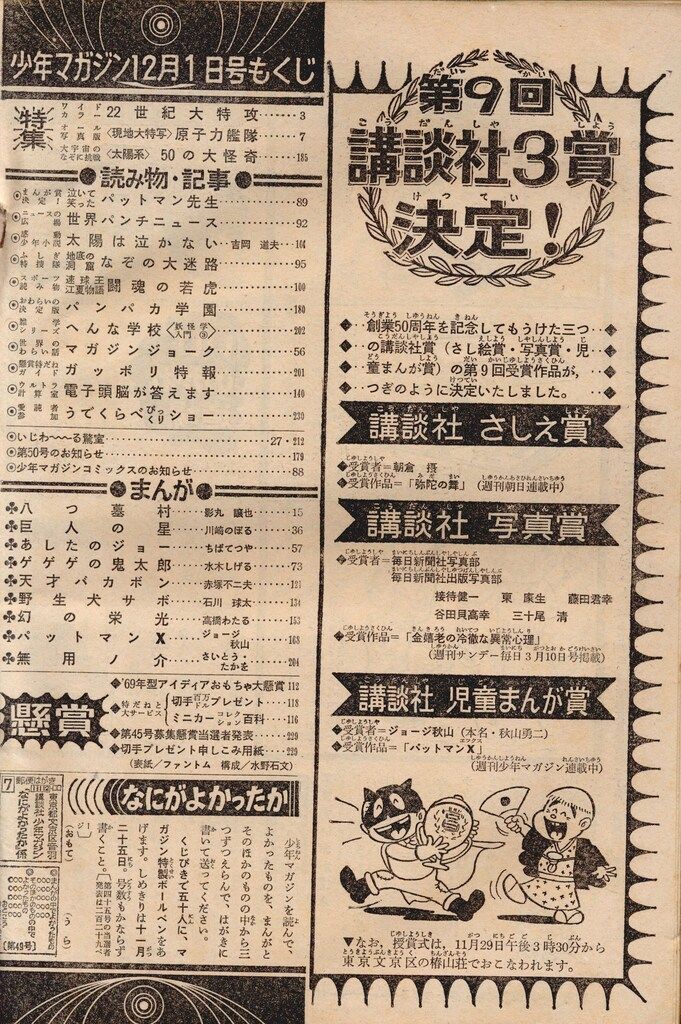 少年マガジン12月1日号もくじ
特集
ワイド 22世紀大特攻……3
カラー オール写真版 〈現地大特写〉原子力艦隊……7
大宇宙のなぞに挑戦 〈太陽系〉50の大怪奇……185
読み物・記事
まんが賞決定! 泣いて笑った パットマン先生……89
ニュースの広場 世界パンチニュース……92
感動少年小説 太陽は泣かない…吉岡 道夫…104
ふしぎ特捜隊 地底の洞窟 なぞの大迷路……95
スポーツ読み物 速球王江夏物語 闘魂の若虎……100
おわらいの決定版 パンパカ学園……180
雑学シリーズ へんな学校〈妖怪学入門③〉……202
世界のわらい話 マガジンジョーク……56
懸賞特だねガイド ガッポリ特報……201
ウルトラ計算室 電子頭脳が答えます……140
愛読者参加 うでくらべびっくりショー……230
いじわ〜〜る驚室……27・212
第50号のお知らせ……179
少年マガジンコミックスのお知らせ……88
まんが
八つ墓村……影丸 譲也……15
巨人の星……川崎のぼる……36
あしたのジョー……ちばてつや……57
ゲゲゲの鬼太郎……水木しげる……73
天才バカボン……赤塚不二夫……121
野生犬サボ……石川 球太……134
幻の栄光……高橋わたる……153
パットマンX……ジョージ秋山……168
無用ノ介……さいとう・たかを……204
懸賞
'69年型アイディアおもちゃ大懸賞 112
特だねと大サービス 切手百万ドルプレゼント……118
ミニカーコレクション百科……116
第45号募集懸賞当選者発表……229
切手プレゼント申しこみ用紙……229
(表紙/ファントム 構成/水野石文)
なにがよかったか
少年マガジンを読んで、
よかったものを、まんがと
そのほかのものの中から三
つずつえらんで、はがきに
書いて送ってください。
くじびきで五十人に、マ
ガジン特製ボールペンをあ
げます。しめきりは十一月
二十五日。号数もかならず
書くこと。(第四十五号の当選者発表は二百二十九ページ)
(おもて)
7
郵便はがき
東京都文京区音羽
講談社少年マガジン
"なにがよかったか"係
(うら)
まんがの中でよかったもの
そのほかのものの中でよかったもの
(第49号)
第9回
講談社3賞
決定!
創業50周年を記念してもうけた三つ
の講談社賞(さし絵賞・写真賞・児
童まんが賞)の第9回受賞作品が、
つぎのように決定いたしました。
講談社 さしえ賞
受賞者=朝倉 摂
受賞作品=「弥陀の舞」(週刊朝日連載中)
講談社 写真賞
受賞者=毎日新聞社写真部
毎日新聞社出版写真部
接待健一 東 康生 藤田君幸
谷田貝高幸 三十尾 清
受賞作品=「金嬉老の冷徹な異常心理」
(週刊サンデー毎日3月10日号掲載)
講談社 児童まんが賞
受賞者=ジョージ秋山(本名・秋山勇二)
受賞作品=「パットマンX」
(週刊少年マガジン連載中)
賞
▼なお、授賞式は、11月29日午後3時30分から
東京文京区の椿山荘でおこなわれます。